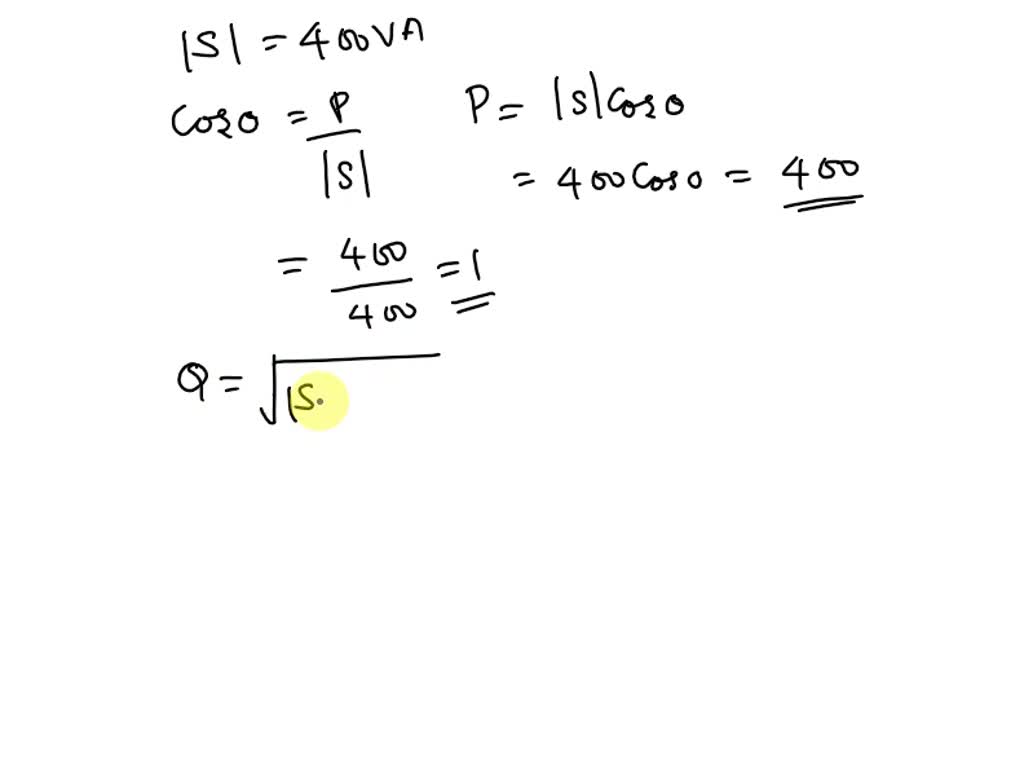 |S| = 400VA
Cos0 = P/|S|
P = |S|Cos0
= 400Cos0 = 400
= 400/400 = 1
Q = √|S